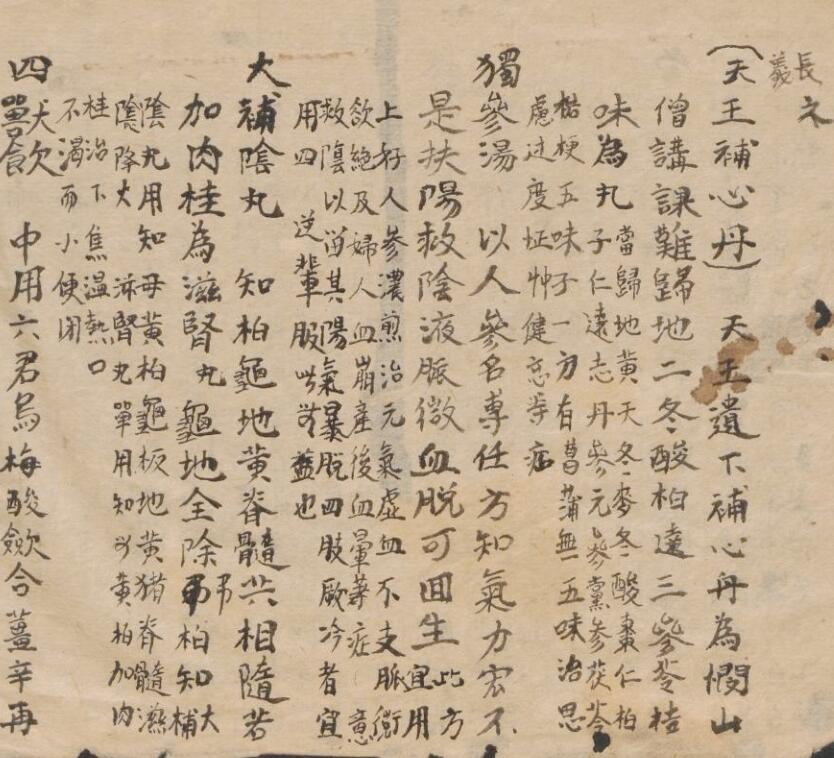 長
義
(天王補心丹) 天王遺下補心丹為憫山
僧講課難歸地二冬酸柏遠三參苓桔
味為丸
當歸地黃天冬麥冬酸棗仁柏
子仁遠志丹參元參黨參茯苓
桔梗五味子一方有菖蒲無五味治思
慮过度怔忡健忘等症
獨參湯 以人參名專任方知氣力宏不
是扶陽救陰液脈微血脱可回生
此方
宜用
上好人參濃煎治元氣虛血不支脈微
欲絕及婦人血崩產後血暈等症意
救陰以留其陽氣暴脱四肢厥冷者宜
用四逆輩服此無益也
大補陰丸 知柏龜地黃脊髓共相隨若
加肉桂為滋腎丸龜地全除用柏知
大
補
陰丸用知母黃柏龜板地黃猪脊髓滋
陰降火 滋腎丸單用知母黃柏加肉
桂治下焦濕熱口
不渴而小便閉
四獸飲 中用六君烏梅酸歛合薑辛再